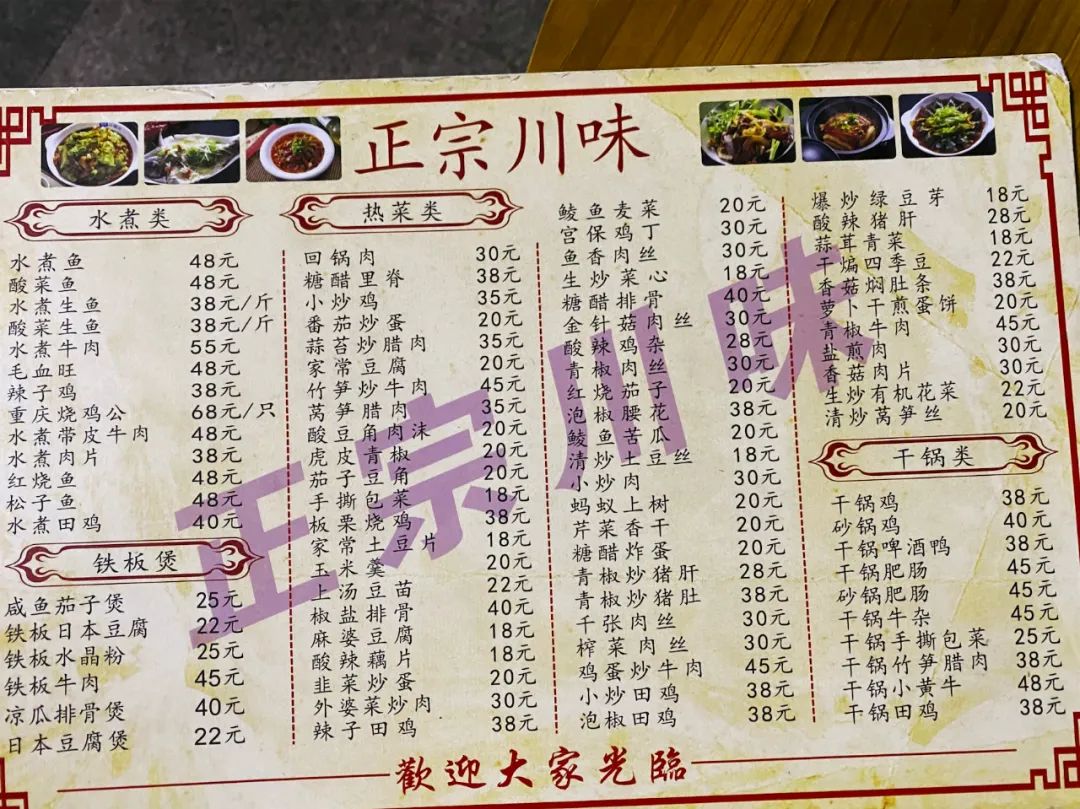 正宗川味
水煮类
水煮鱼 48元
酸菜鱼 48元
水煮生鱼 38元/斤
酸菜生鱼 38元/斤
水煮牛肉 55元
毛血旺 48元
辣子鸡 38元
重庆烧鸡公 68元/只
水煮带皮牛肉 48元
水煮肉片 38元
红烧鱼 48元
松子鱼 48元
水煮田鸡 40元
铁板煲
咸鱼茄子煲 25元
铁板日本豆腐 22元
铁板水晶粉 25元
铁板牛肉 45元
凉瓜排骨煲 40元
日本豆腐煲 22元
热菜类
回锅肉 30元
糖醋里脊 38元
小炒鸡 35元
番茄炒蛋 20元
蒜苔炒腊肉 35元
家常豆腐 20元
竹笋炒牛肉 45元
莴笋腊肉 35元
酸豆角肉沫 20元
虎皮青椒 20元
茄子豆角 20元
手撕包菜 18元
板栗烧鸡 38元
家常土豆片 18元
玉米羹 20元
上汤豆苗 22元
椒盐排骨 40元
麻婆豆腐 18元
酸辣藕片 18元
韭菜炒蛋 20元
外婆菜炒肉 30元
辣子田鸡 38元
鲮鱼麦菜 20元
宫保鸡丁 30元
鱼香肉丝 30元
生炒菜心 18元
糖醋排骨 40元
金针菇肉丝 30元
酸辣鸡杂 28元
青椒肉丝 30元
红烧茄子 20元
泡椒腰花 38元
鲮鱼苦瓜 20元
清炒土豆丝 18元
小炒肉 30元
蚂蚁上树 20元
芹菜香干 20元
糖醋炸蛋 20元
青椒炒猪肝 28元
青椒炒猪肚 38元
千张肉丝 30元
榨菜肉丝 30元
鸡蛋炒牛肉 45元
小炒田鸡 38元
泡椒田鸡 38元
爆炒绿豆芽 18元
酸辣猪肝 28元
蒜茸青菜 18元
干煸四季豆 22元
香菇焖肚条 38元
萝卜干煎蛋饼 20元
青椒牛肉 45元
盐煎肉 30元
香菇肉片 30元
生炒有机花菜 22元
清炒莴笋丝 20元
干锅类
干锅鸡 38元
砂锅鸡 40元
干锅啤酒鸭 38元
干锅肥肠 45元
砂锅肥肠 45元
干锅牛杂 45元
干锅手撕包菜 25元
干锅竹笋腊肉 38元
干锅小黄牛 48元
干锅田鸡 38元
正宗川味
歡迎大家光臨